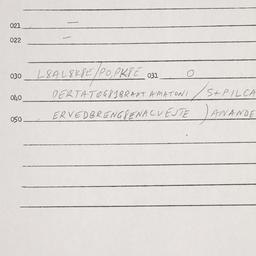 021 –
022 –
030 L8AL8K8E/POPK8E 031 O
040 DERTATO8J8RAKTAMATONI / S+PILCA
050 ERVEDBRENG8ENALVEJTE ) AVANDE